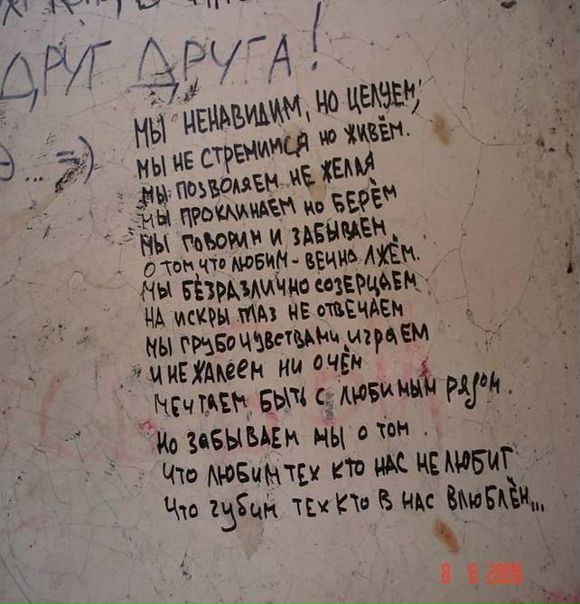 ДРУГ ДРУГА!
... =)
МЫ НЕНАВИДИМ, НО ЦЕЛУЕМ,
МЫ НЕ СТРЕМИМСЯ НО ЖИВЁМ.
МЫ ПОЗВОЛЯЕМ НЕ ЖЕЛАЯ
МЫ ПРОКЛИНАЕМ НО БЕРЁМ
МЫ ГОВОРИМ И ЗАБЫВАЕМ
О ТОМ, ЧТО ЛЮБИМ - ВЕЧНО ЛЖЁМ.
МЫ БЕЗРАЗЛИЧНО СОЗЕРЦАЕМ
НА ИСКРЫ ГЛАЗ НЕ ОТВЕЧАЕМ
МЫ ГРУБО ЧУВСТВАМИ ИГРАЕМ
И НЕ ЖАЛЕЕМ НИ О ЧЁМ
МЕЧТАЕМ БЫТЬ С ЛЮБИМЫМ РЯДОМ.
НО ЗАБЫВАЕМ МЫ О ТОМ
ЧТО ЛЮБИМ ТЕХ КТО НАС НЕ ЛЮБИТ
ЧТО ГУБИМ ТЕХ КТО В НАС ВЛЮБЛЁН...
8 6 2008